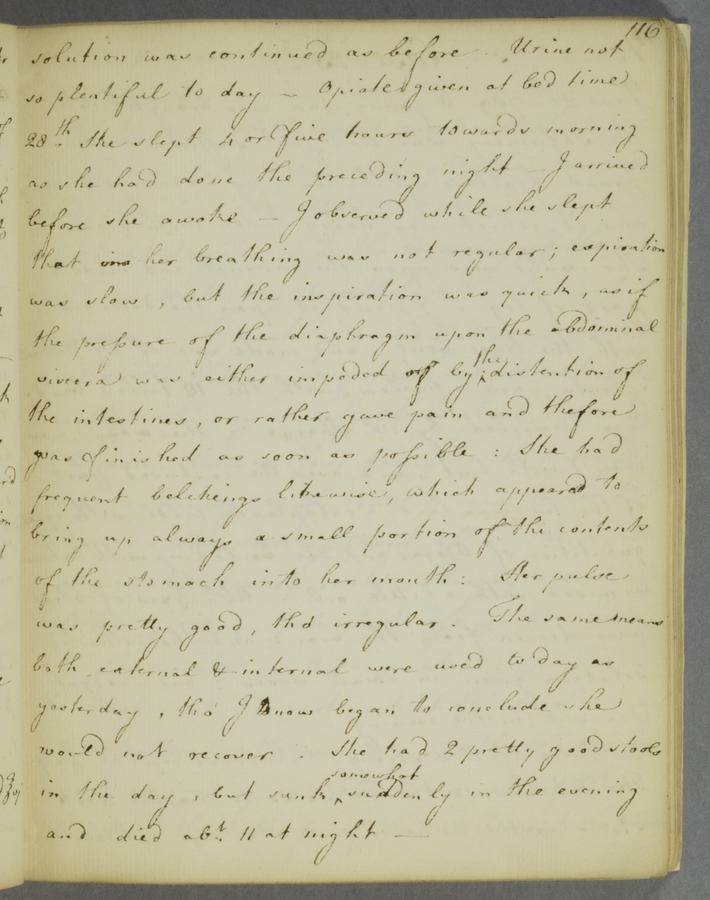 116
solution was continued as before. Urine not
so plentiful to day – Opiates given at bed time
28th. She slept 4 or five hours towards morning
as she had done the preceding night – I arrived
before she awoke – I observed while she slept
that her breathing was not regular; expiration
was slow, but the inspiration was quick, as if
the pressure of the diaphragm upon the abdominal
viscera was either impeded by the distention of
the intestines, or rather gave pain and thefore
was finished as soon as possible: She had
frequent belchings likewise, which appeared to
bring up always a small portion of the contents
of the stomach into her mouth: Her pulse
was pretty good, tho' irregular. The same means
both external & internal were used to day as
yesterday, tho' I now began to conclude she
would not recover. She had 2 pretty good stools
in the day, but sunk somewhat suddenly in the evening
and died abt. 11 at night —